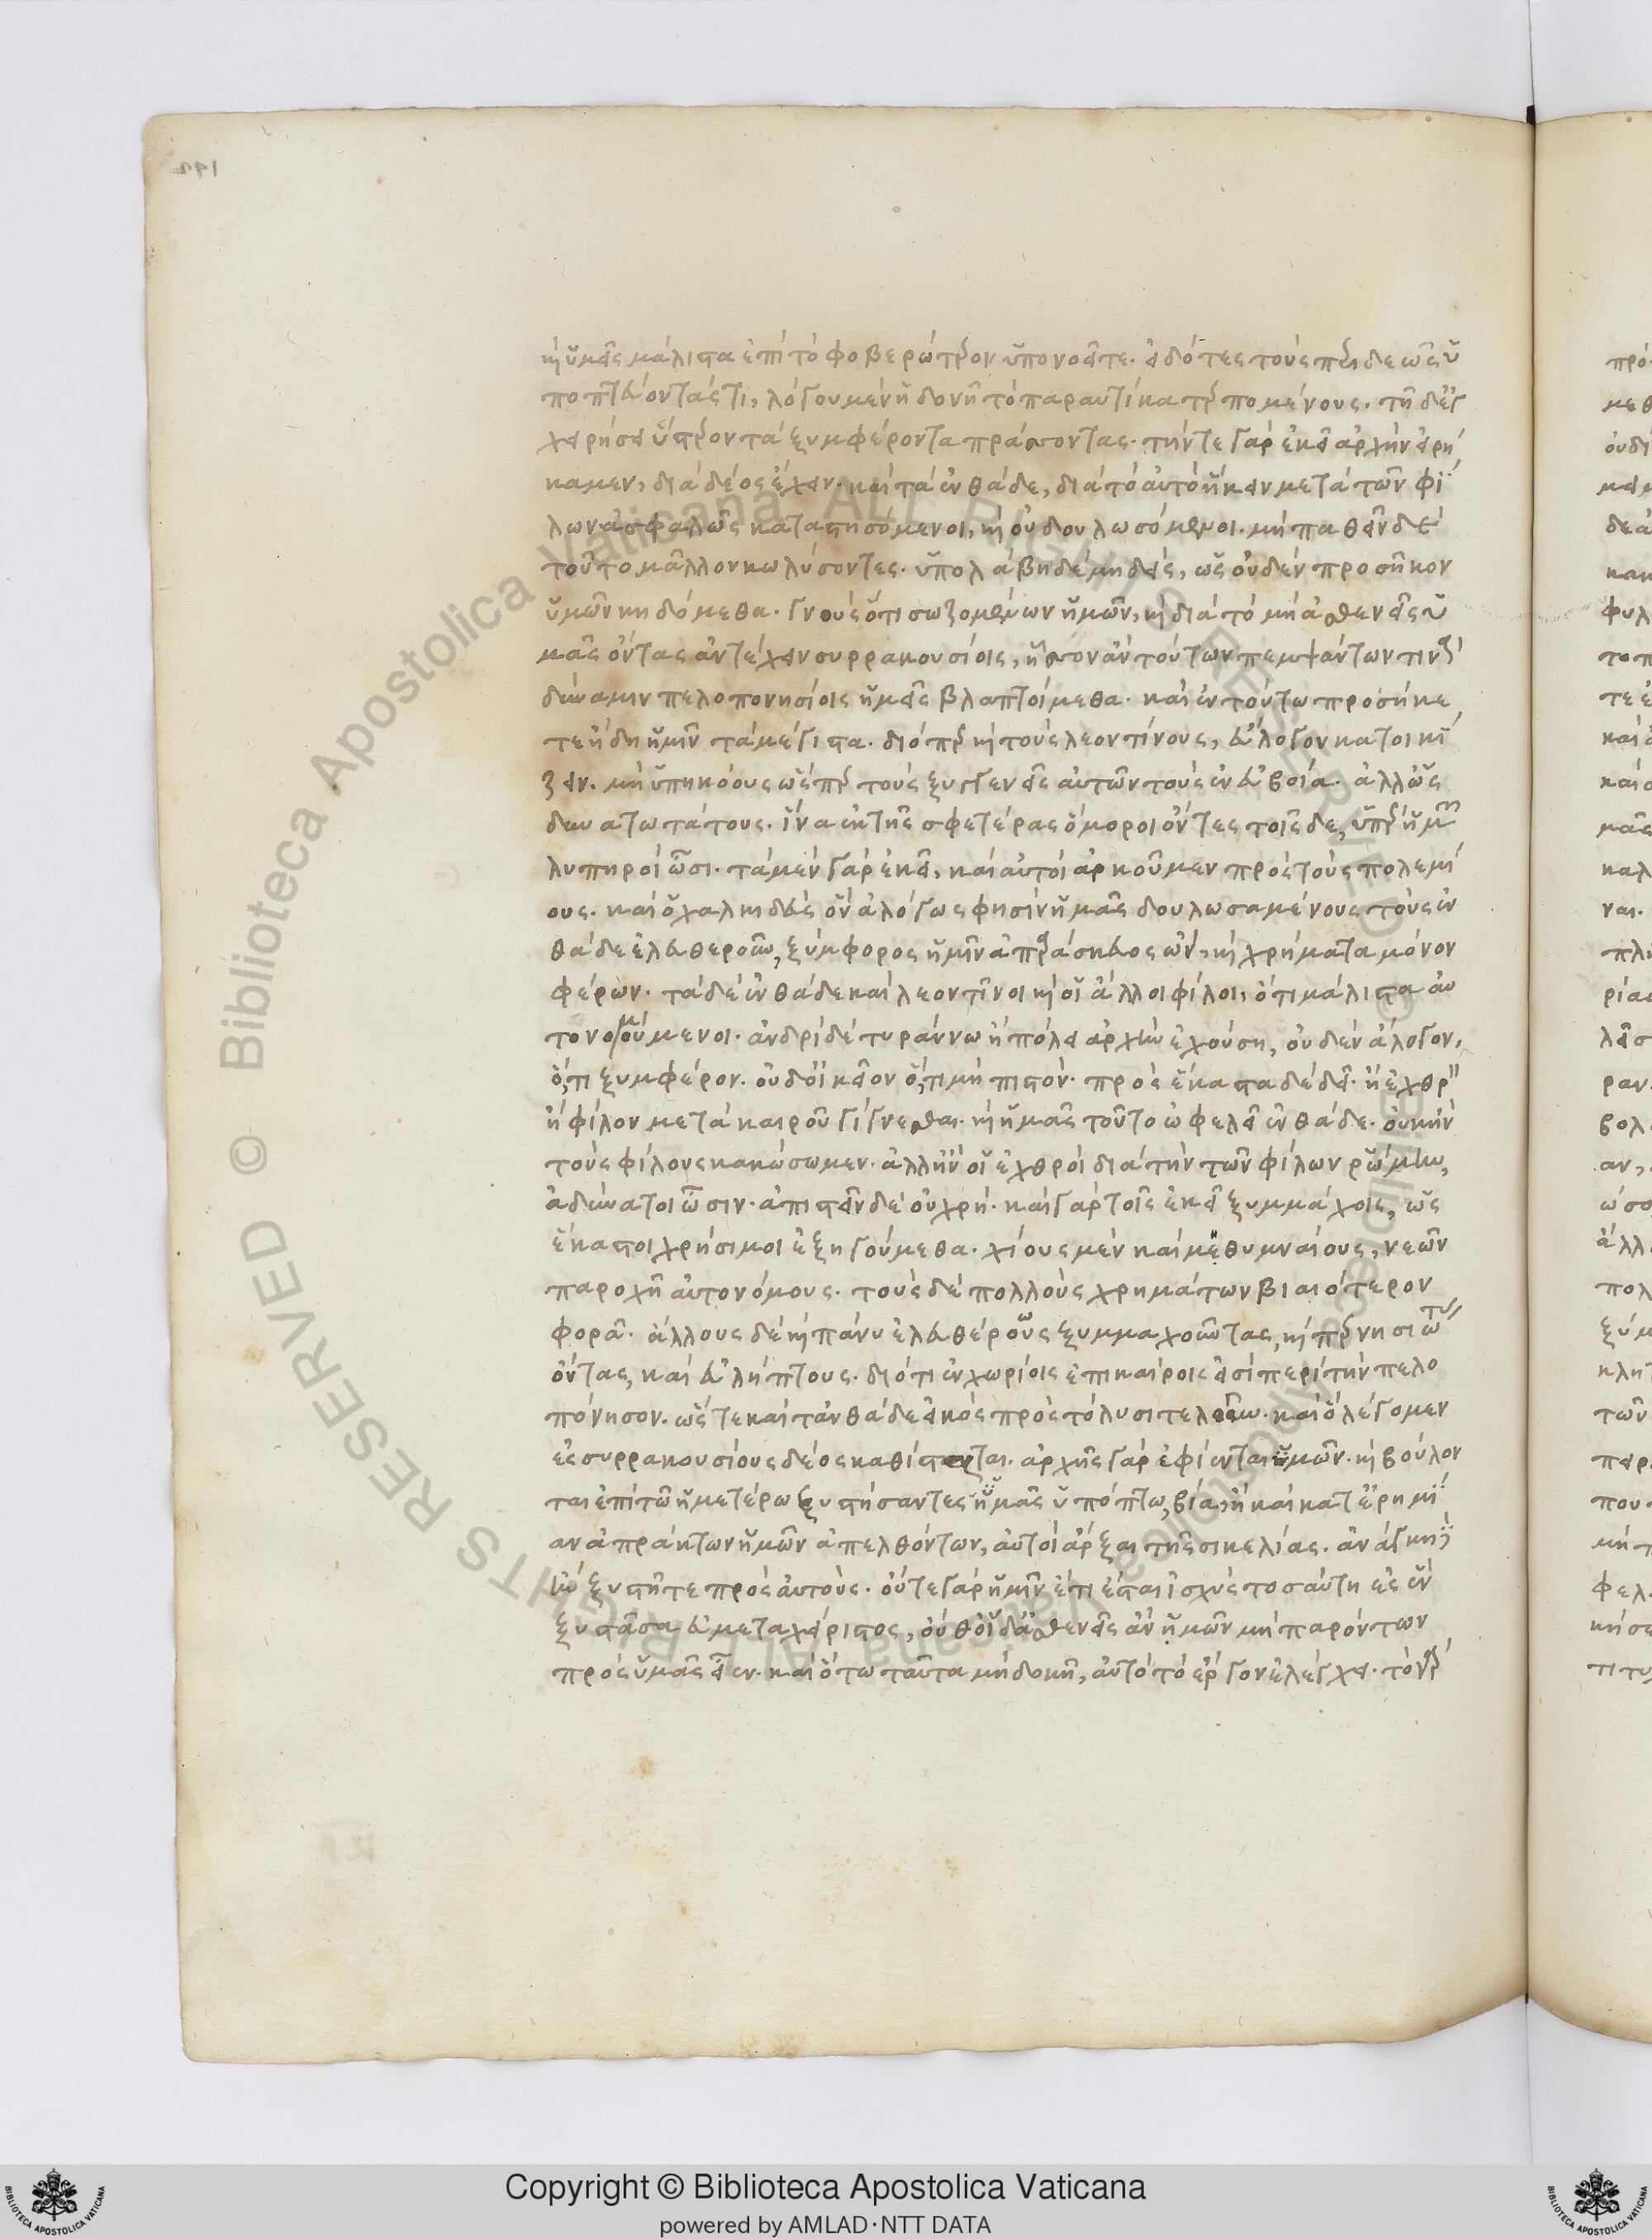 καὶ ὑμεῖς μάλιστα ἐπὶ τὸ φοβερώτερον ὑπονοεῖτε. εἰδότες τοὺς περιδεῶς ὑ
ποπτεύοντάς τι, λόγου μὲν ἡδονῆ τὸ παραυτίκα τερπομένους. τῆ δ' ἐγ
χειρήσει ὕστερον τὰ ξυμφέροντα πράσσοντας. τήν τε γὰρ ἐκεῖ ἀρχὴν εἰρή
καμεν, διὰ δέος ἔχειν. καὶ τὰ ἐνθάδε, διὰ τὸ αὐτὸ ἥκειν μετὰ τῶν φί
λων ἀσφαλῶς καταστησόμενοι, καὶ οὐ δουλωσόμενοι. μὴ παθεῖν δὲ
τοῦτο μᾶλλον κωλύσοντες. ὑπολάβη δὲ μηδεὶς, ὡς οὐδὲν προσῆκον
ὑμῶν κηδόμεθα. γνοὺς ὅτι σωζομένων ὑμῶν, καὶ διὰ τὸ μὴ ἀσθενεῖς ὑ
μᾶς ὄντας ἀντέχειν συρρακουσίοις, ἧσσον ἂν τούτων πεμψάντων τινὰ
δύναμιν πελοπονησίοις ἡμεῖς βλαπτοίμεθα. καὶ ἐν τούτω προσήκε
τε ἤδη ἡμῖν τὰ μέγιστα. διόπερ καὶ τοὺς λεοντίνους, εὔλογον κατοικί
ζειν. μὴ ὑπηκόους ὥσπερ τοὺς ξυγγενεῖς αὐτῶν τοὺς ἐν εὐβοία. ἀλλ' ὡς
δυνατωτάτους. ἵνα ἐκ τῆς σφετέρας ὅμοροι ὄντες τοῖσδε, ὑπὲρ ἡμῶν
λυπηροὶ ὦσι. τὰ μὲν γὰρ ἐκεῖ, καὶ αὐτοὶ ἀρκοῦμεν πρὸς τοὺς πολεμί
ους. καὶ ὁ χαλκιδεὺς ὃν ἀλόγως φησὶν ἡμᾶς δουλωσαμένους τοὺς ἐν
θάδε ἐλευθεροῦν, ξύμφορος ἡμῖν ἀπαράσκευος ὢν, καὶ χρήματα μόνον
φέρων. τὰ δὲ ἐνθάδε καὶ λεοντῖνοι καὶ οἱ ἄλλοι φίλοι, ὅτι μάλιστα αὐ
τονομούμενοι. ἀνδρὶ δὲ τυράννω ἢ πόλει ἀρχὴν ἐχούση, οὐδὲν ἄλογον,
ὅ,τι ξυμφέρον. οὐδ' οἰκεῖον ὅ,τι μὴ πιστόν. πρὸς ἕκαστα δὲ δεῖ. ἢ ἐχθρὸν
ἢ φίλον μετὰ καιροῦ γίγνεσθαι. καὶ ἡμᾶς τοῦτο ὠφελεῖ ἐνθάδε. οὐκ ἢν
τοὺς φίλους κακώσωμεν. ἀλλ' ἢν οἱ ἐχθροὶ διὰ τὴν τῶν φίλων ῥώμην,
ἀδύνατοι ὦσιν. ἀπιστεῖν δὲ οὐ χρή. καὶ γὰρ τοῖς ἐκεῖ ξυμμάχοις, ὡς
ἕκαστοι χρήσιμοι ἐξηγούμεθα. χίους μὲν καὶ μηθυμναίους, νεῶν
παροχῆ αὐτονόμους. τοὺς δὲ πολλοὺς χρημάτων βιαιότερον
φορᾶ. ἄλλους δὲ καὶ πάνυ ἐλευθέρως ξυμμαχοῦντας, καίπερ νησιώτας
ὄντας, καὶ εὐλήπτους. διότι ἐν χωρίοις ἐπικαίροις εἰσὶ περὶ τὴν πελο
πόνησον. ὥστε καὶ τἀνθάδε εἰκὸς πρὸς τὸ λυσιτελοῦν. καὶ ὃ λέγομεν
ἐς συρρακουσίους δέος καθίστασθαι. ἀρχῆς γὰρ ἐφίενται ὑμῶν. καὶ βούλον
ται ἐπὶ τῶ ἡμετέρω ξυστήσαντες ὑμᾶς ὑπόπτω, βία, ἢ καὶ κατ' ἐρημί
αν ἀπράκτων ἡμῶν ἀπελθόντων, αὐτοὶ ἄρξαι τῆς σικελίας. ἀνάγκη δὲ
ἢν ξυστῆτε πρὸς αὐτούς. οὔτε γὰρ ἡμῖν ἔτι ἔσται ἰσχὺς τοσαύτη ἐς ἓν
ξυστᾶσα εὐμεταχείριστος, οὔθ' οἵδ' ἀσθενεῖς ἂν ἡμῶν μὴ παρόντων
πρὸς ὑμᾶς εἶεν. καὶ ὅτω ταῦτα μὴ δοκῆ, αὐτὸ τὸ ἔργον ἐλέγχει. τὸ γὰρ